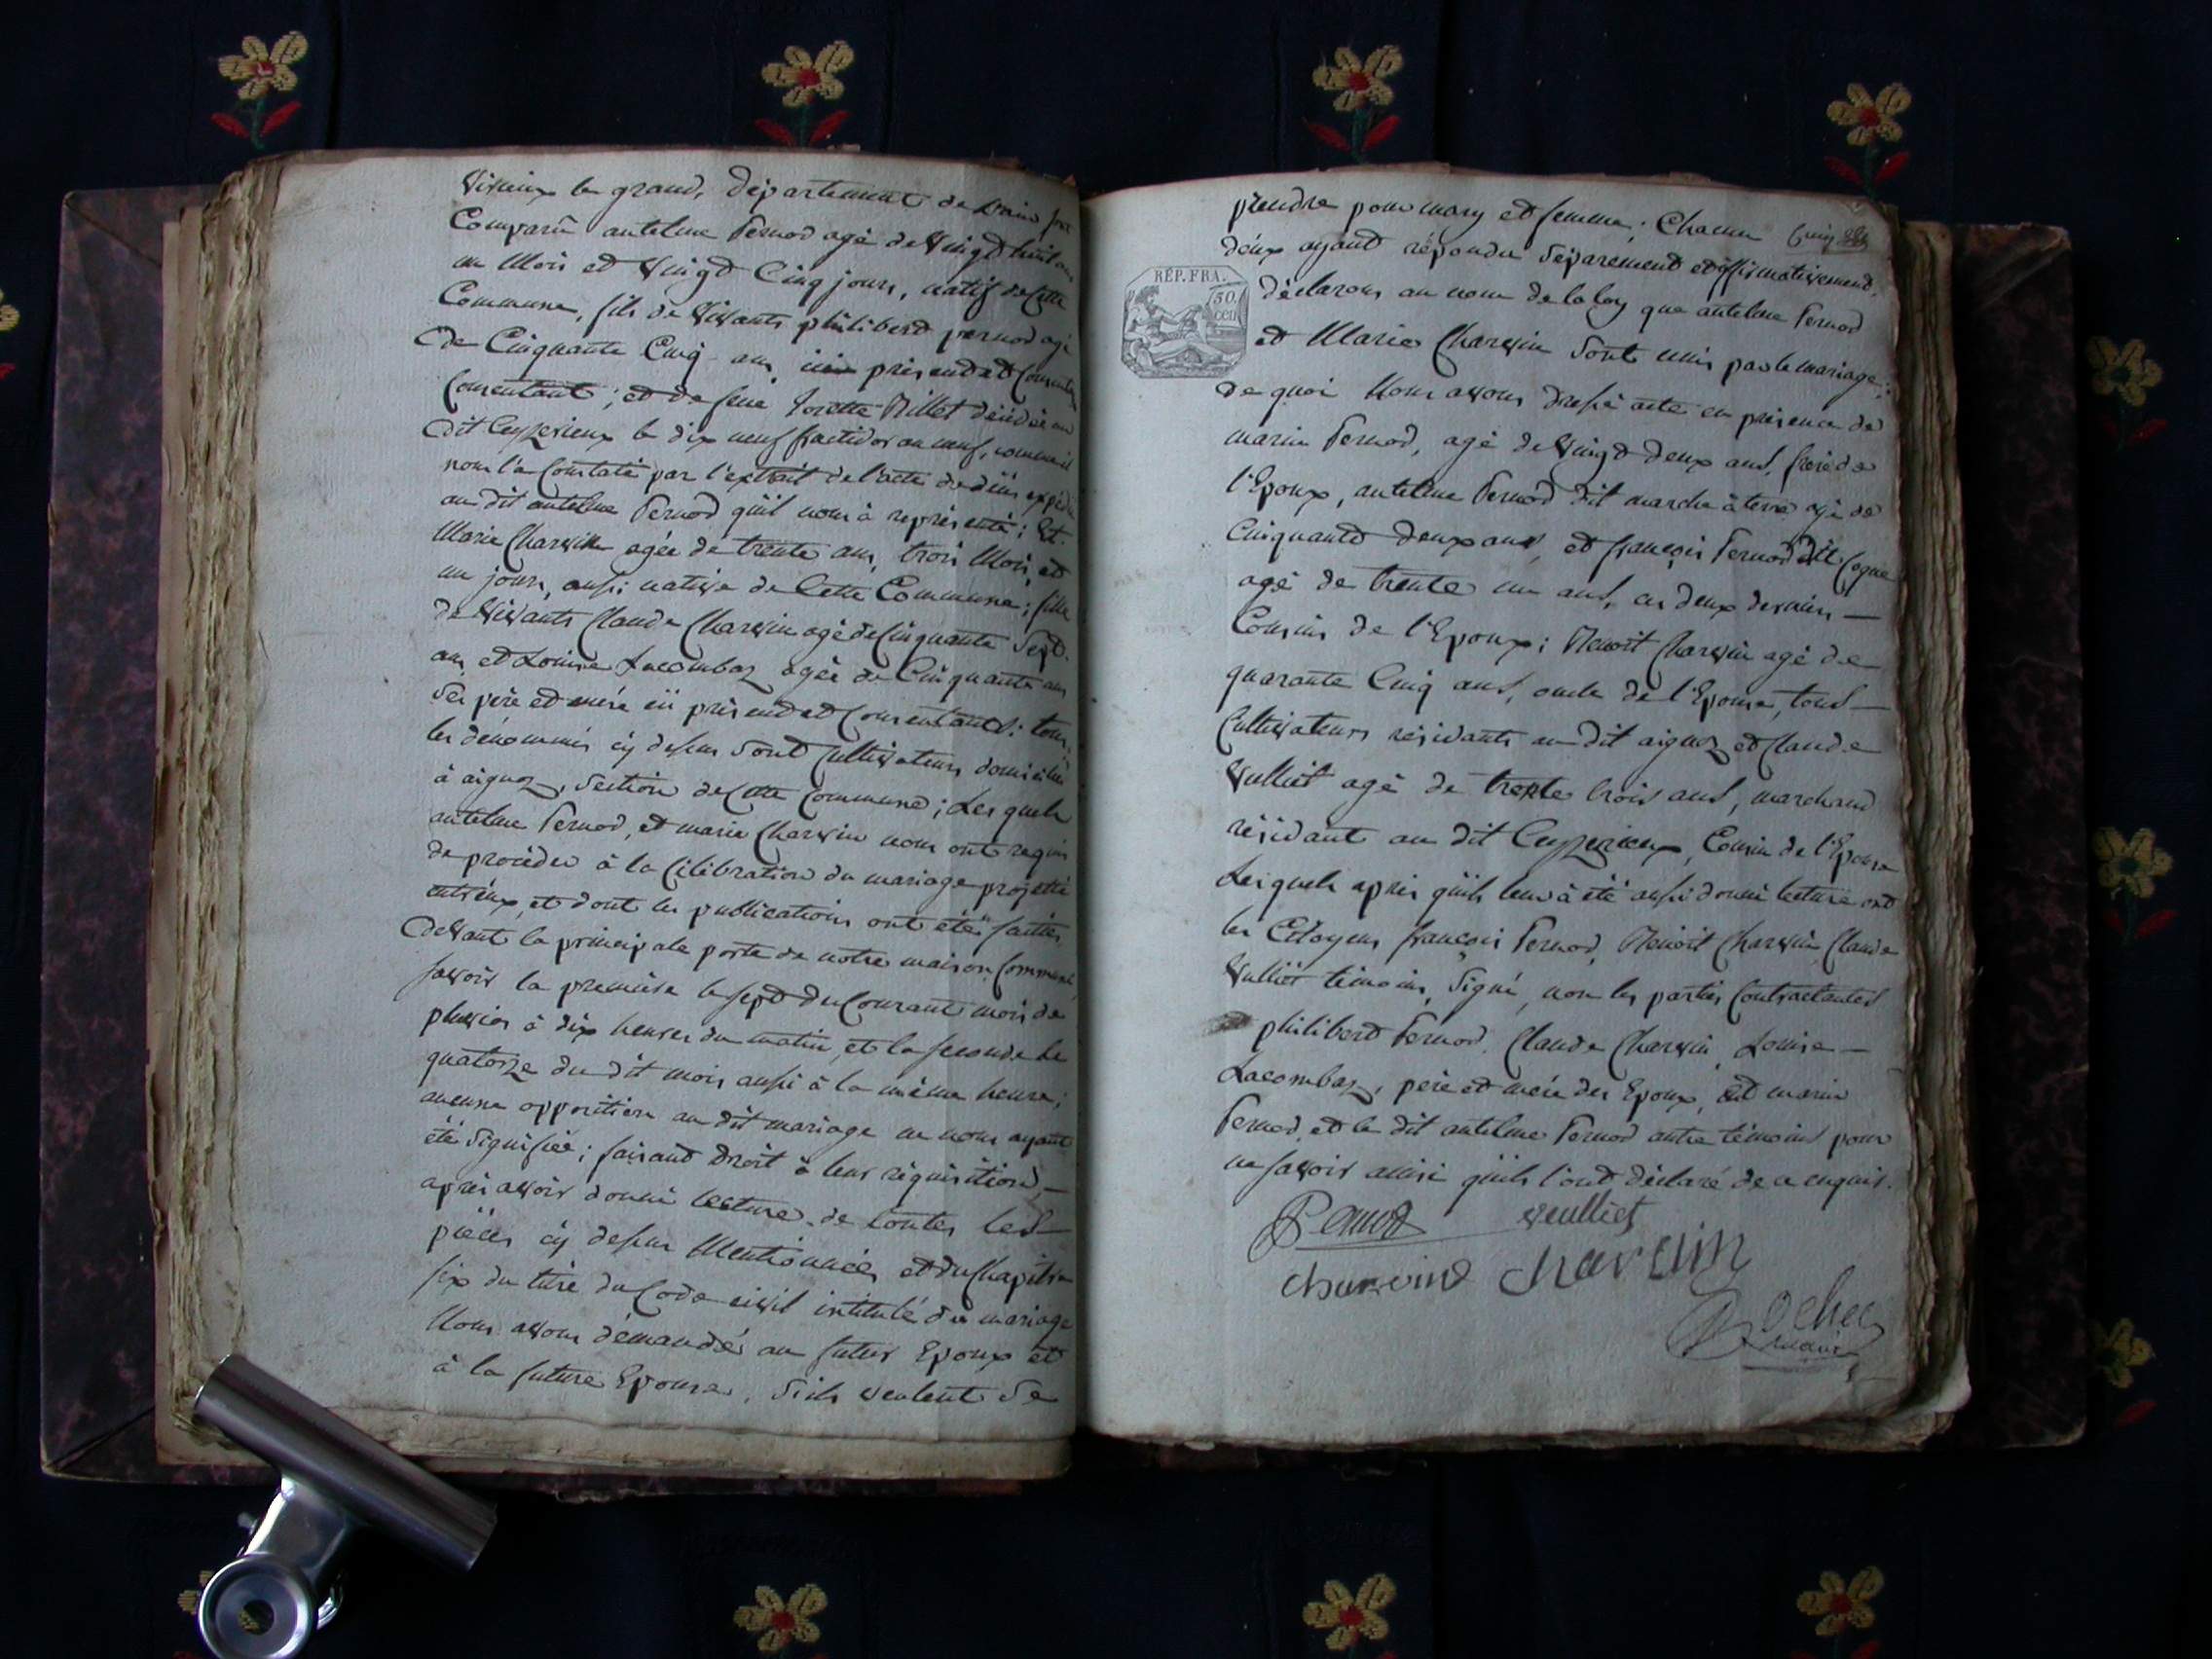 Virieux le grand, département de Lain sont
Comparu antelme Pernod agé de Vingt huit ans
un Mois et Vingt Cinq jours, natif de Cette
Commune, fils de Vivants philibert pernod agé
De Cinquante Cinq ans, présent et Consentant
Consentant ; et de feue Josette Billet décédée au
dit Ceyzerieux le dix neuf fructidor an neuf, comme il
nous l'a Constaté par l'extrait de l'acte de décès expédié
au dit antelme Pernod qu'il nous à représenté ; Et
Marie Charvin agée de trente ans, trois Mois, et
un jour, aussi native de Cette Commune ; fille
de Vivants Claude Charvin agé de Cinquante Sept
ans et Louise Lacombaz agée de Cinquante ans
Ses père et mére ici présend et Consentants : tous
les dénommés cy dessus Sont Cultivateurs domiciliés
à aignoz, Section de Cette Commune ; Les quels
antelme Pernod, et marie Charvin nous ont requis
de procéder à la Célébration du mariage projetté
entr'eux, et dont les publications ont été faittes
Devant la principale porte de notre maison Commune,
savoir la premiére le sept du Courant mois de
pluviose à dix heures du matin, et la seconde le
quatorze du dit mois aussi à la même heure ;
aucune opposition au dit mariage ne nous ayant
été Signifiée ; faisant Droit à leur réquisition,
après avoir donné lecture de toutes les
piéces cy dessus Mentionnées et du Chapitre
six du titre du Code civil intitulé du mariage
Nous avons démandé au futur Epoux et
à la future Epouse, S'ils veulent Se
prendre pour mary et femme ; Chacun
deux ayant répondu Séparement et affirmativement,
RÉP. FRA.
50.
cen
déclarons au nom de la loy que antelme Pernod
et Marie Charvin Sont unis par le mariage ;
De quoi Nous avons dressé acte en présence de
marin Pernod, agé de Vingt deux ans, frére de
l'Epoux, antelme Pernod dit marche à terre agé de
Cinquante deux ans, et françois Pernod dit Cogne
agé de trente un ans, ces deux derniers
Cousins de l'Epoux ; Benoit Charvin agé de
quarante Cinq ans, oncle de l'Epouse, tous
Cultivateurs résidants au dit aignoz et Claude
Vulliet agé de trente trois ans, marchand
résidant au dit Ceyzerieux, Cousin de l'Epouse
Lesquels après qu'ils leur à été aussi donné lecture ont
les Citoyens françois Pernod, Benoit Charvin, Claude
Vulliet témoins, Signé, non les parties Contractantes
philibert Pernod, Claude Charvin, Louise
Lacombaz, pére et mére des Epoux, marin
Pernod, et le dit antelme Pernod autre témoins pour
ne savoir ainsi qu'ils l'ont déclaré de ce enquis.
Pernod veulliet
charvind charvin
Rochee
maire